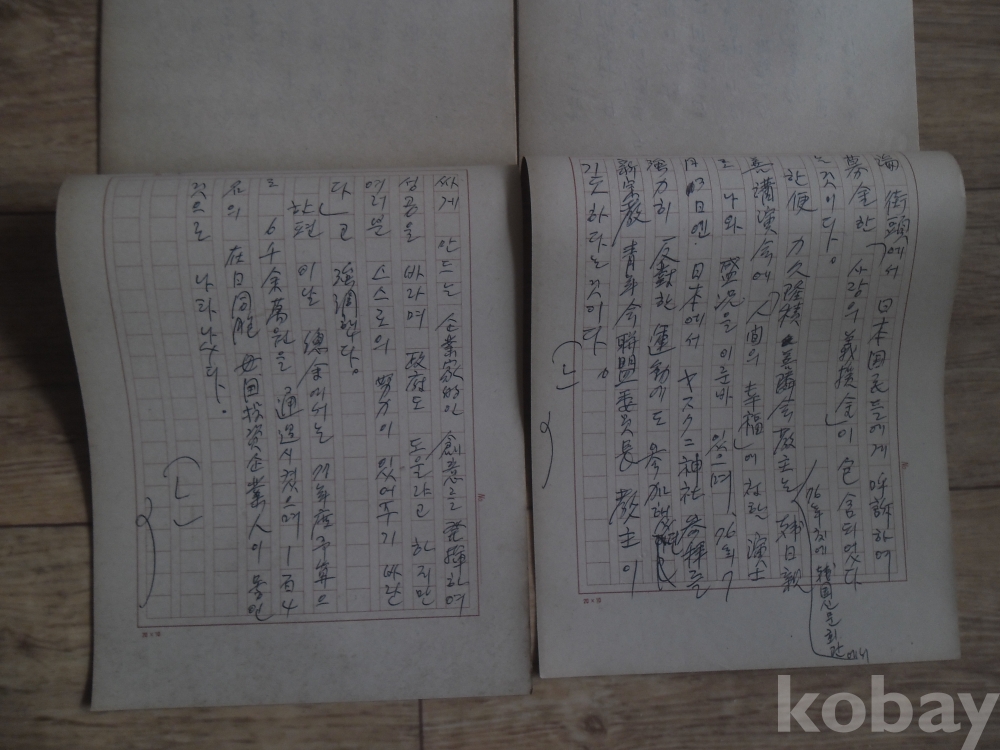 論 街頭에서 日本国民들에게 呼訴하여
募金한 「사랑의 義援金」이 包含되었다
는 것이다.
한便 力久隆積 善隣会教主는 韓日親
善講演会에 「人間의 幸福」에 関한 演士
로 나와 盛況을 이룬바 있으며, 76年 7
日本에서 ヤスクニ神社 参拜를
強力히 反対한 運動에도 参加
新宗教 青年会 聯盟委員長 教主이
기도 하다는 것이다.
76年度에 韓国신문회관에서
싸게 만드는 企業家的인 創意를 発揮하여
성공을 바라며 政府도 도운다고 하지만
여러분 스스로의 努力이 있어주기 바란
다」고 強調했다.
한편 이날 總会에서는 77年度予算으
로 6千余萬원을 通過시켰으며 1百4
名의 在日同胞 母国投資企業人이 動員
것으로 나타났다.
kobay